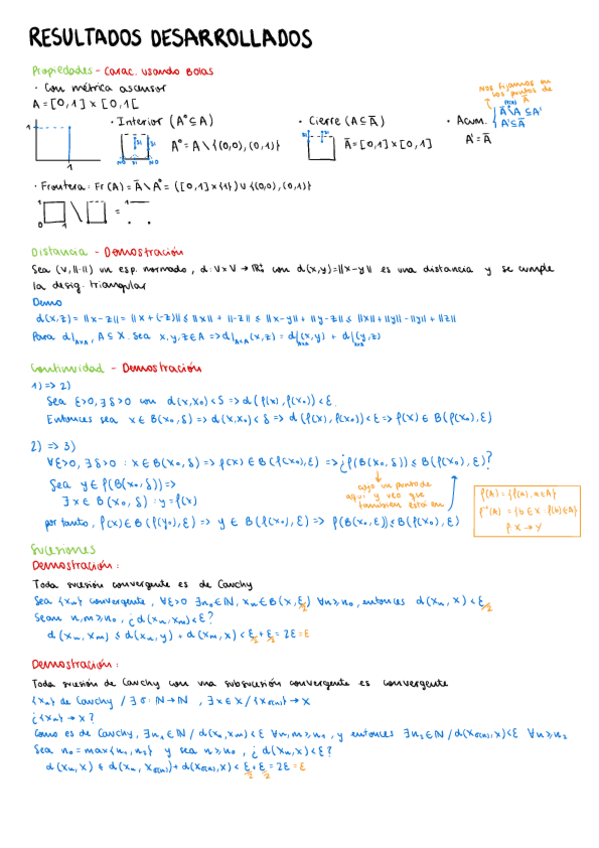 RESULTADOS DESARROLLADOS
Propiedades - Carac. usando Bolas
· Con métrica ascensor
A = [0,1] x [0,1[
· Interior (A° ⊆ A)
A° = A \ {(0,0), (0,1)}
· Cierre (A ⊆ Ā)
Ā = [0,1] x [0,1]
· Acum.
Nos fijamos en los puntos de Ā
Ā \ A ⊆ A'
A' ⊆ Ā
A' = Ā
· Frontera: Fr(A) = Ā \ A° = ([0,1] x {1}) ∪ {(0,0), (0,1)}
Distancia - Demostración
Sea (V, ||·||) un esp. normado, d: V x V → ℝ⁺₀ con d(x,y) = ||x-y|| es una distancia y se cumple
la desig. triangular
Demo
d(x,z) = ||x-z|| = ||x + (-z)|| ≤ ||x|| + ||-z|| ≤ ||x-y|| + ||y-z|| ≤ ||x|| + ||y|| - ||y|| + ||z||
Para d|AxA, A ⊆ X. Sea x,y,z ∈ A => d|AxA (x,z) = d|(x,y) + d|(y,z)
Continuidad - Demostración
1) => 2)
Sea ε>0, ∃ δ>0 con d(x,x₀) < δ => d(f(x), f(x₀)) < ε.
Entonces sea x ∈ B(x₀, δ) => d(x,x₀) < δ => d(f(x), f(x₀)) < ε => f(x) ∈ B(f(x₀), ε)
2) => 3)
∀ε>0, ∃ δ>0 : x ∈ B(x₀, δ) => f(x) ∈ B(f(x₀), ε) => ¿f(B(x₀, δ)) ⊆ B(f(x₀), ε)?
Sea y ∈ f(B(x₀, δ)) =>
∃ x ∈ B(x₀, δ) : y = f(x)
cojo un punto de
aquí y veo que
también está en
por tanto, f(x) ∈ B(f(x₀), ε) => y ∈ B(f(x₀), ε) => f(B(x₀, ε)) ⊆ B(f(x₀), ε)
f(A) = {f(a) : a ∈ A}
f⁻¹(A) = {b ∈ X : f(b) ∈ A}
f: X → Y
Sucesiones
Demostración:
Toda sucesión convergente es de Cauchy
Sea {xₙ} convergente, ∀ε>0 ∃n₀ ∈ ℕ, xₙ ∈ B(x, ε/2) ∀n ≥ n₀, entonces d(xₙ, x) < ε/2
Sean n,m ≥ n₀, ¿d(xₙ, xₘ) < ε?
d(xₙ, xₘ) ≤ d(xₙ, y) + d(xₘ, x) < ε/2 + ε/2 = 2ε = ε
Demostración:
Toda sucesión de Cauchy con una subsucesión convergente es convergente
{xₙ} de Cauchy / ∃ σ: ℕ → ℕ, ∃ x ∈ X / {xσ(n)} → x
¿{xₙ} → x?
Como es de Cauchy, ∃n₁ ∈ ℕ / d(xₙ, xₘ) < ε ∀n,m ≥ n₁, y entonces ∃n₂ ∈ ℕ / d(xσ(n), x) < ε ∀n ≥ n₂
Sea n₀ = max{n₁, n₂} y sea n ≥ n₀, ¿d(xₙ, x) < ε?
d(xₙ, x) ≤ d(xₙ, xσ(n)) + d(xσ(n), x) < ε/2 + ε/2 = 2ε = ε